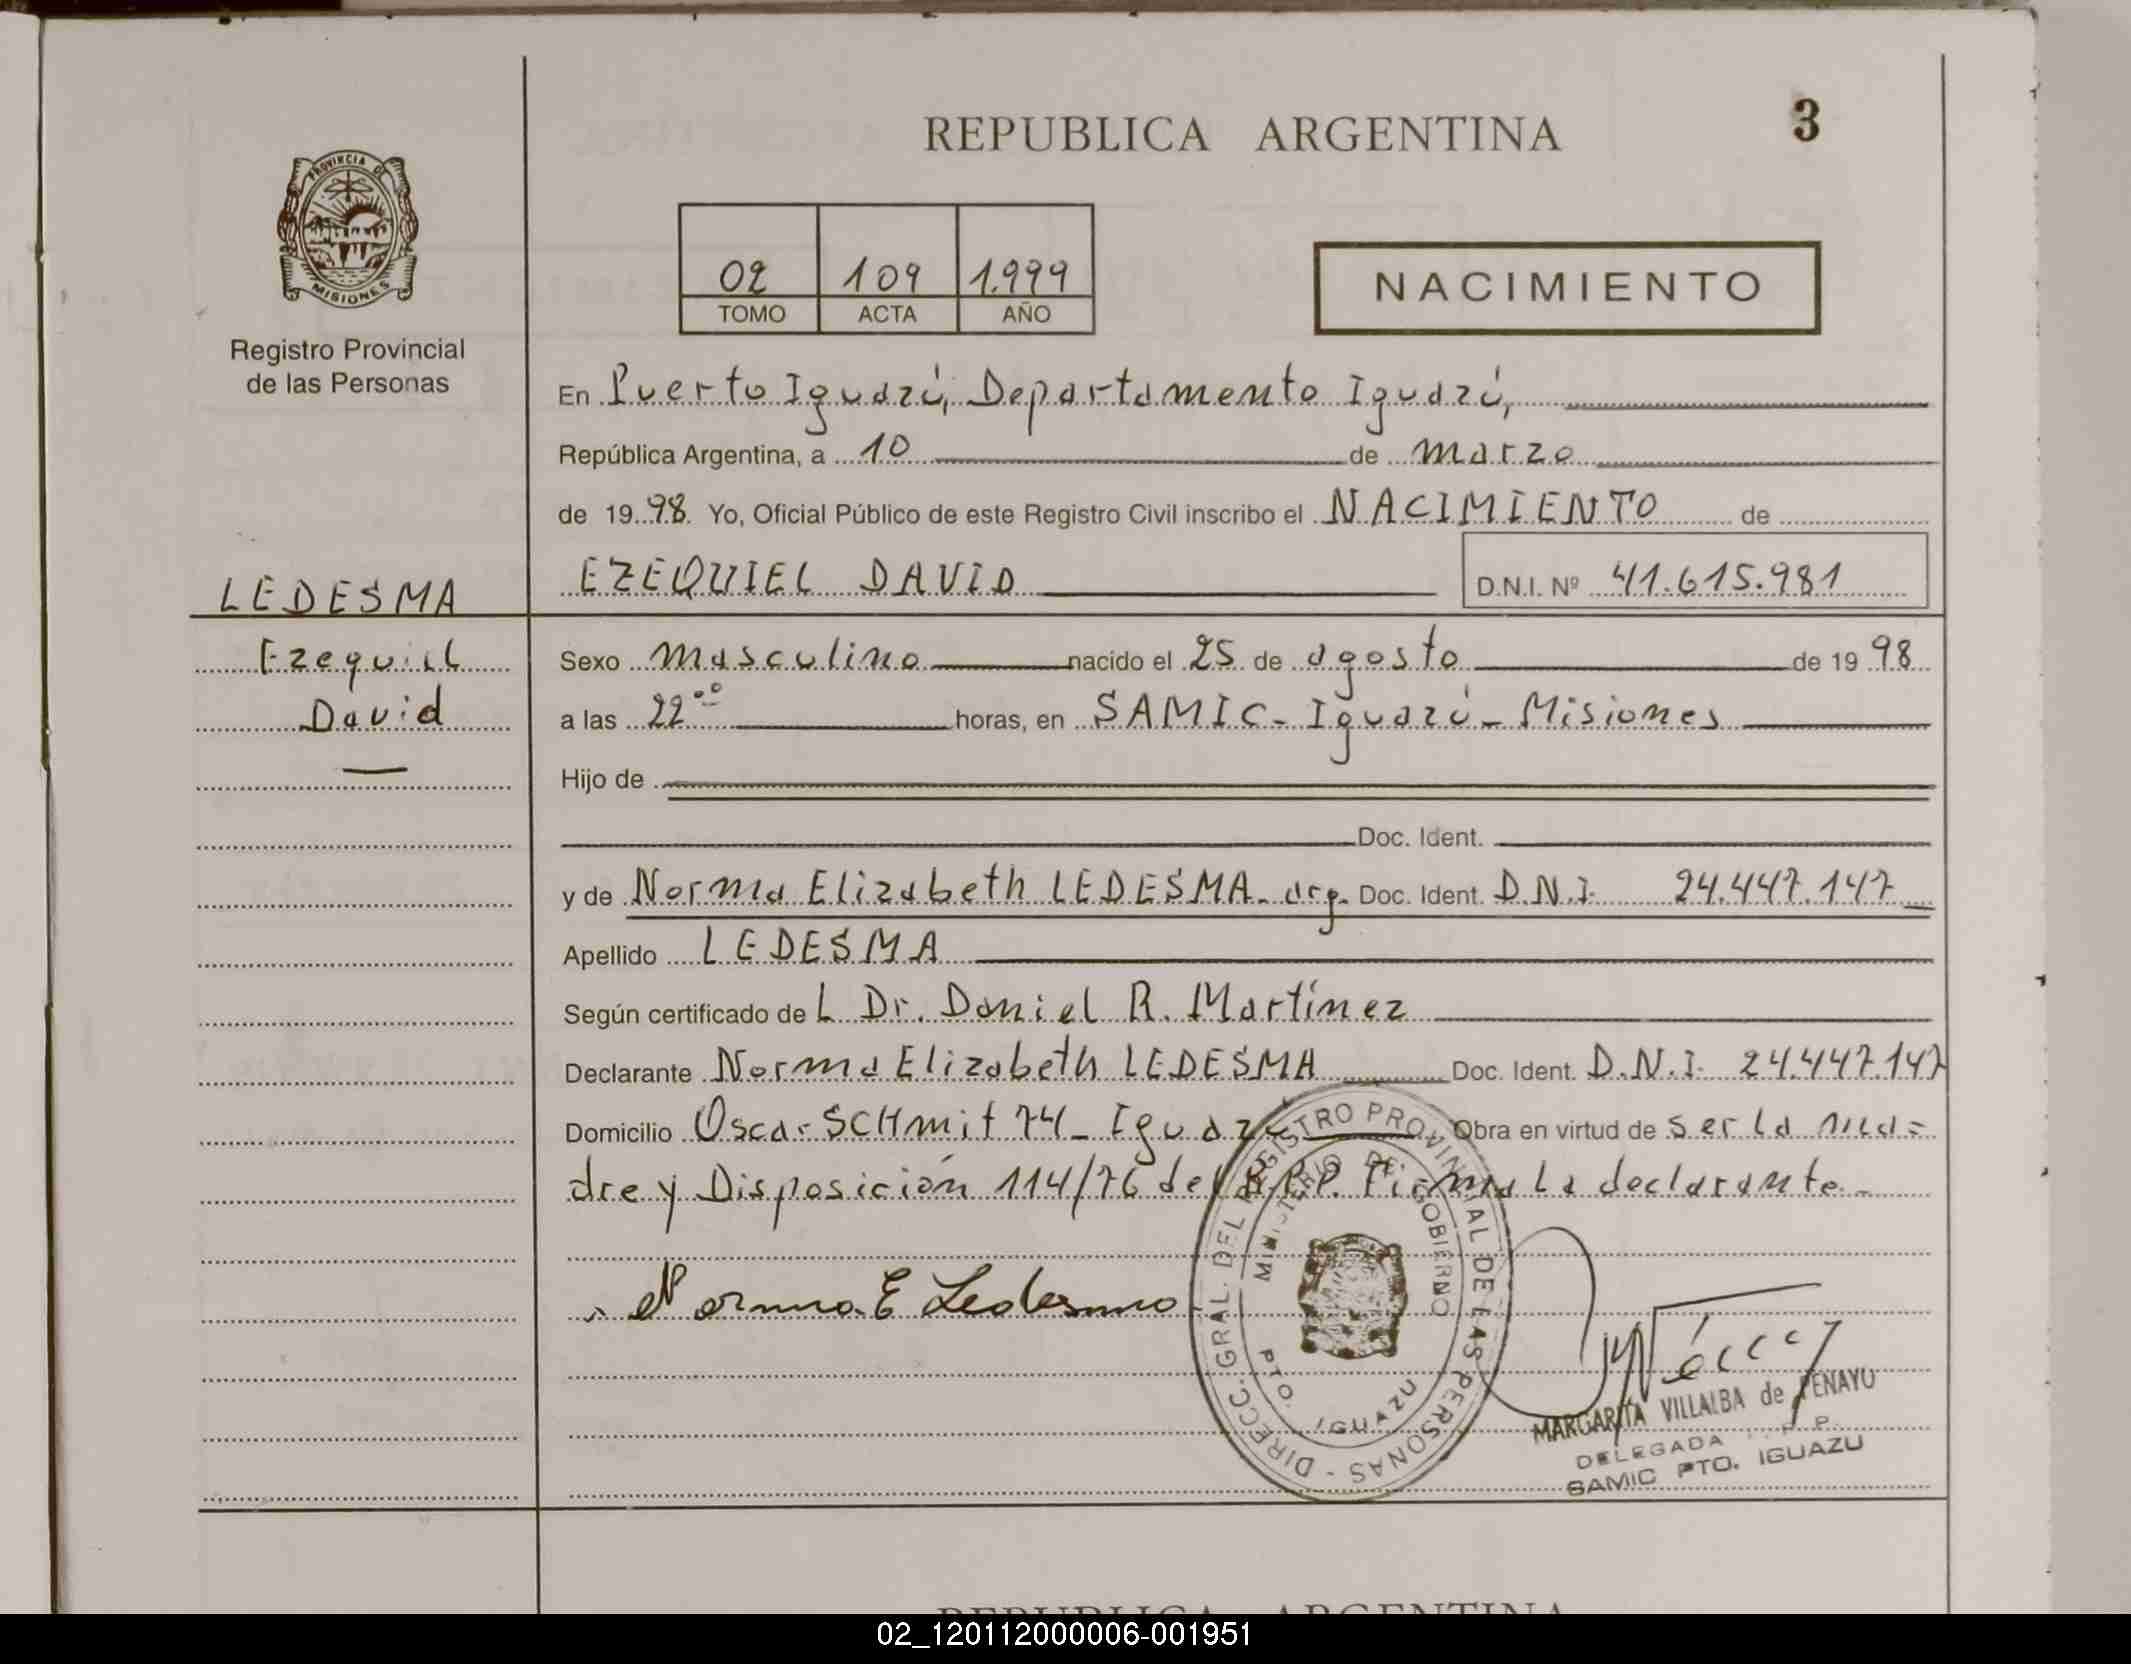 REPUBLICA ARGENTINA
3
PROVINCIA DE
MISIONES
Registro Provincial
de las Personas
02 109 1.999
TOMO ACTA AÑO
NACIMIENTO
En Puerto Iguazú, Departamento Iguazú,
República Argentina, a 10 de marzo
de 1998. Yo, Oficial Público de este Registro Civil inscribo el NACIMIENTO de
LEDESMA
Ezequiel
David
EZEQUIEL DAVID D.N.I. Nº 41.615.981
Sexo masculino nacido el 25 de agosto de 1998
a las 22ºº horas, en SAMIC - Iguazú - Misiones
Hijo de
Doc. Ident.
y de Norma Elizabeth LEDESMA - arg. Doc. Ident. D.N.I. 24.447.147
Apellido LEDESMA
Según certificado de L Dr. Daniel R. Martínez
Declarante Norma Elizabeth LEDESMA Doc. Ident. D.N.I. 24.447.147
Domicilio Oscar SCHmit 74 - Iguazú Obra en virtud de ser la ma=
dre y Disposición 114/76 del R.P.P. Firma La declarante.-
Norma E Ledesma
DIRECC. GRAL. DEL REGISTRO PROVINCIAL DE LAS PERSONAS -
MINISTERIO DE GOBIERNO
PTO. IGUAZU
MARGARITA VILLALBA de PENAYO
DELEGADA R. P. P.
SAMIC PTO. IGUAZU
REPUBLICA ARGENTINA
02_120112000006-001951